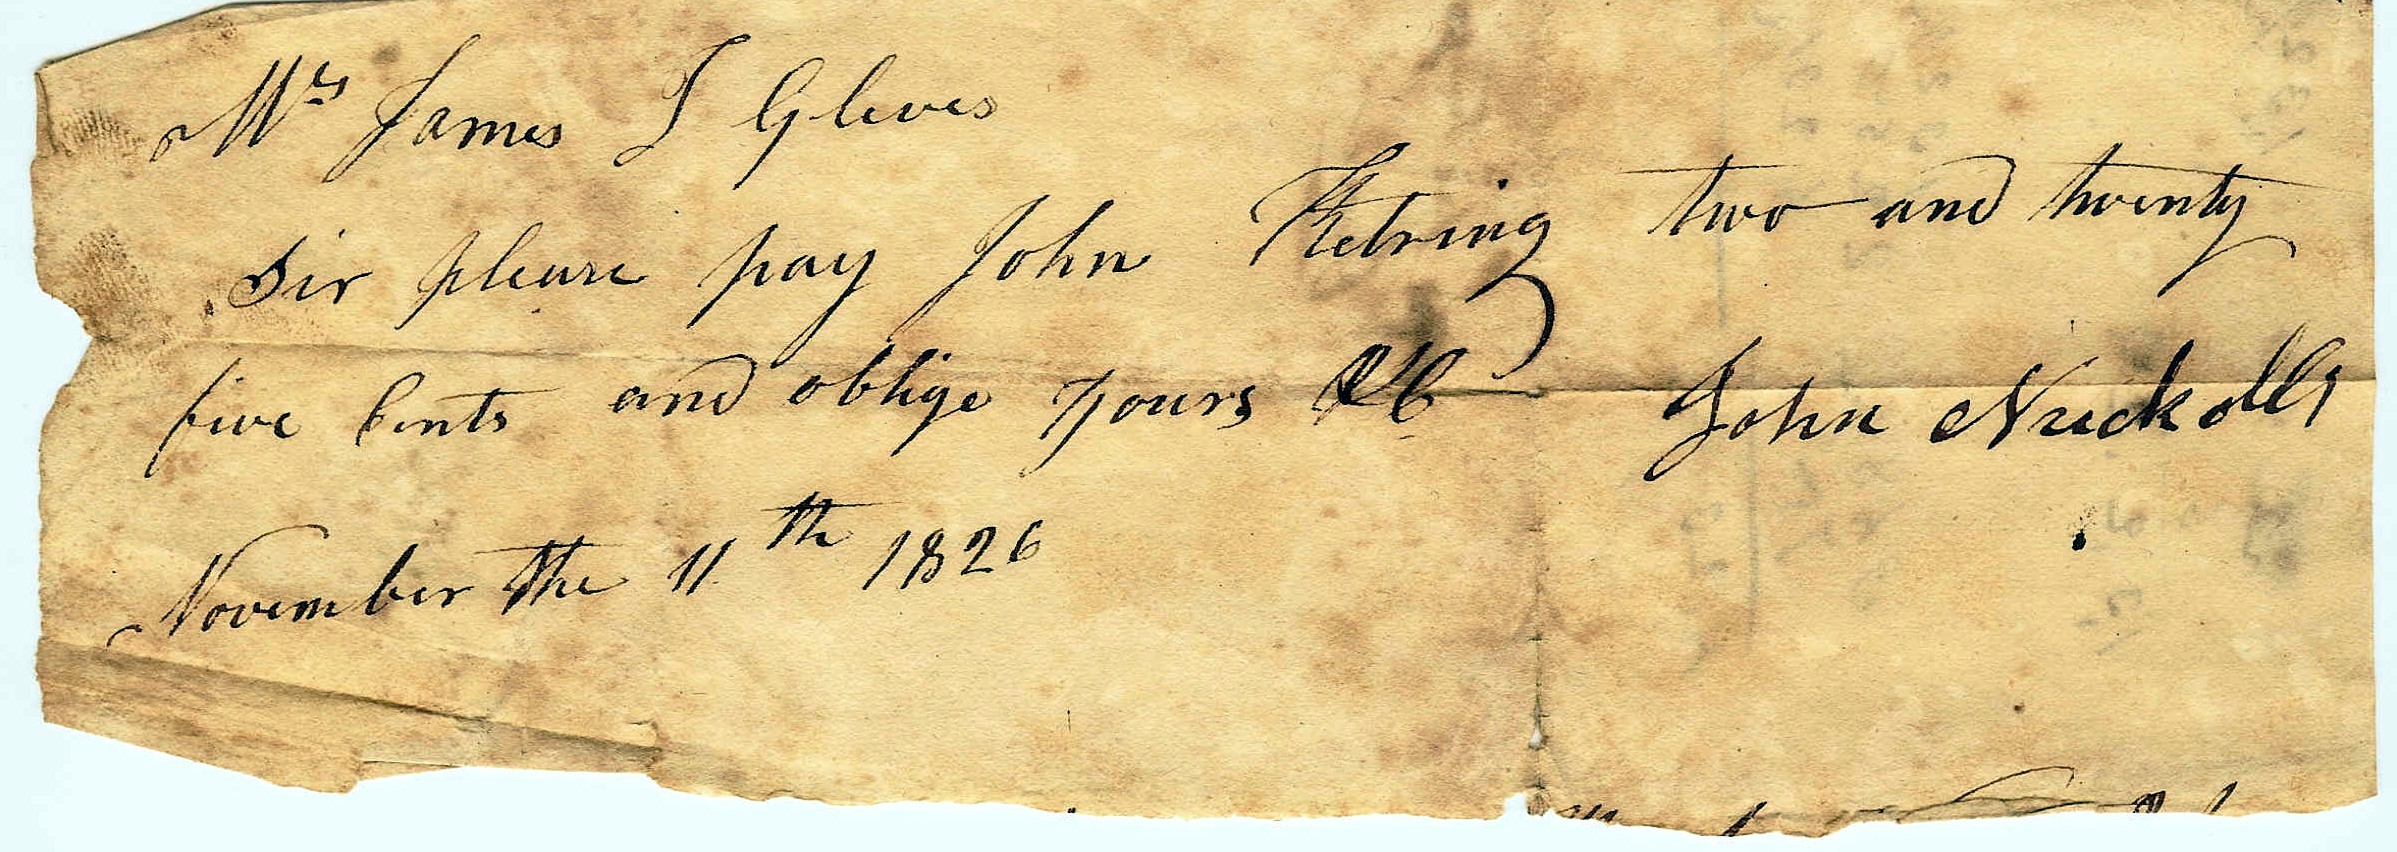 Mr James T Gleves
Sir please pay John Ketring two and twenty
five Cents and oblige yours &C John Nuckolls
November the 11th 1826